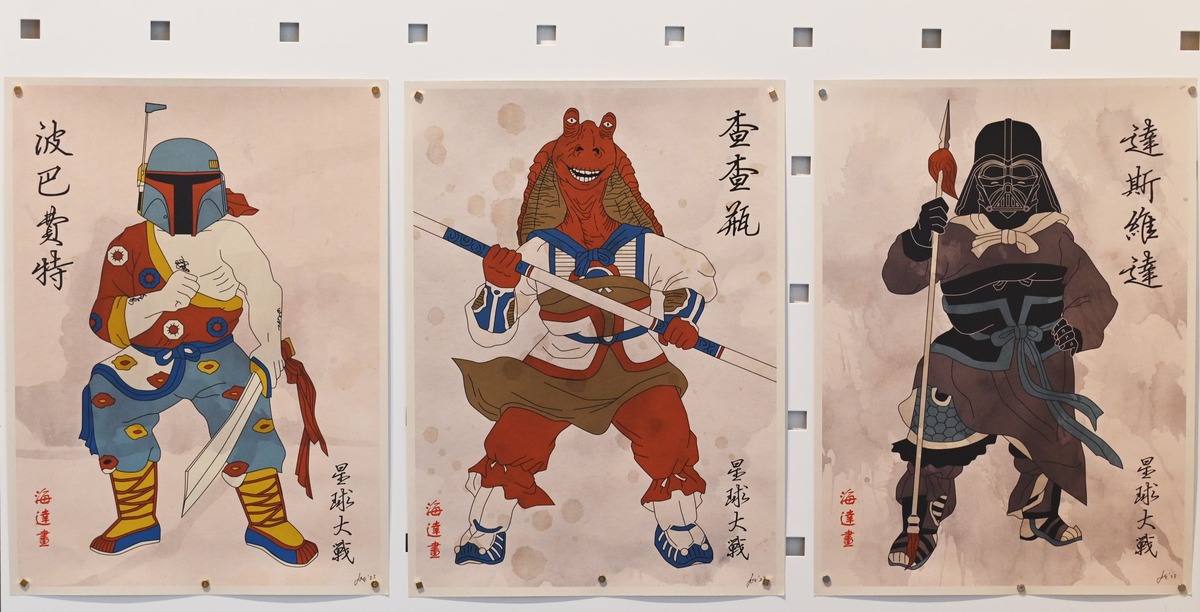 波巴費特
海達畫
星球大戰
查查瓶
海達畫
星球大戰
達斯維達
海達畫
星球大戰